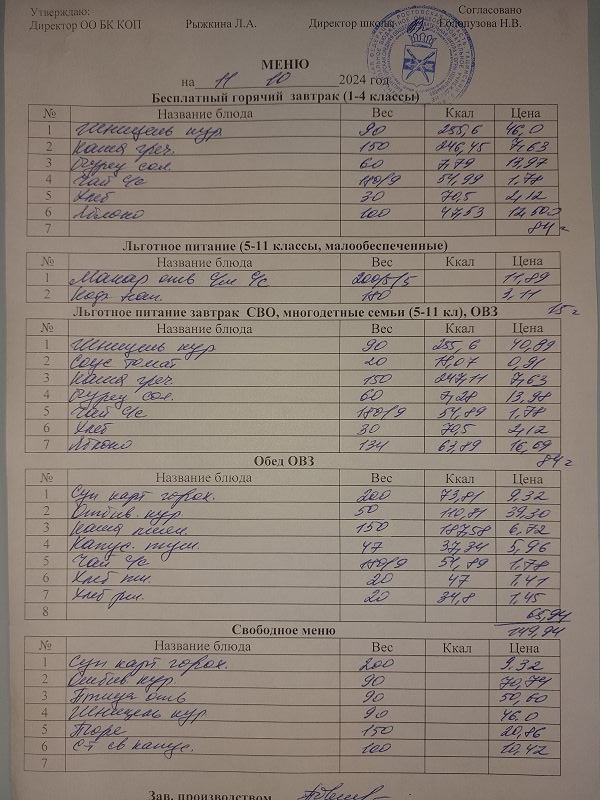 Утверждаю:
Согласовано
Директор ОО БК КОП Рыжкина Л.А. Директор школы Голопузова Н.В.
МЕНЮ
на 11 10 2024 год
Бесплатный горячий завтрак (1-4 классы)
№ Название блюда Вес Ккал Цена
1 Шницель кур 90 255,6 46,0
2 Каша греч. 150 246,45 7,63
3 Огурец сол. 60 7,79 13,97
4 Чай с/с 180/9 54,99 1,78
5 Хлеб 30 70,5 2,12
6 Яблоко 100 47,53 12,500
7 84 г
Льготное питание (5-11 классы, малообеспеченные)
№ Название блюда Вес Ккал Цена
1 Макар отв с/м с/с 200/5/5 11,89
2 Кофе нап. 180 3,11
15 г
Льготное питание завтрак СВО, многодетные семьи (5-11 кл), ОВЗ
№ Название блюда Вес Ккал Цена
1 Шницель кур 90 255,6 40,89
2 Соус томат 20 18,07 0,91
3 Каша греч. 150 247,11 7,63
4 Огурец сол. 60 7,28 13,98
5 Чай с/с 180/9 54,89 1,78
6 Хлеб 30 70,5 2,12
7 Яблоко 134 63,89 16,69
84 г
Обед ОВЗ
№ Название блюда Вес Ккал Цена
1 Суп карт горох. 200 73,81 9.32
2 Отбив. кур. 50 110,81 39,30
3 Каша пшен. 150 187,58 6,72
4 Капус. туш. 47 37,34 5,96
5 Чай с/с 180/9 54,89 1.78
6 Хлеб пш. 20 47 1.41
7 Хлеб рж. 20 34,8 1,45
8 65,94
149,94
Свободное меню
№ Название блюда Вес Ккал Цена
1 Суп карт горох. 200 9.32
2 Отбив кур. 90 70,74
3 Птица отв 90 50,60
4 Шницель кур 90 46.0
5 Пюре 150 20,86
6 С-т св капус. 100 10,42
7
Зав. производством